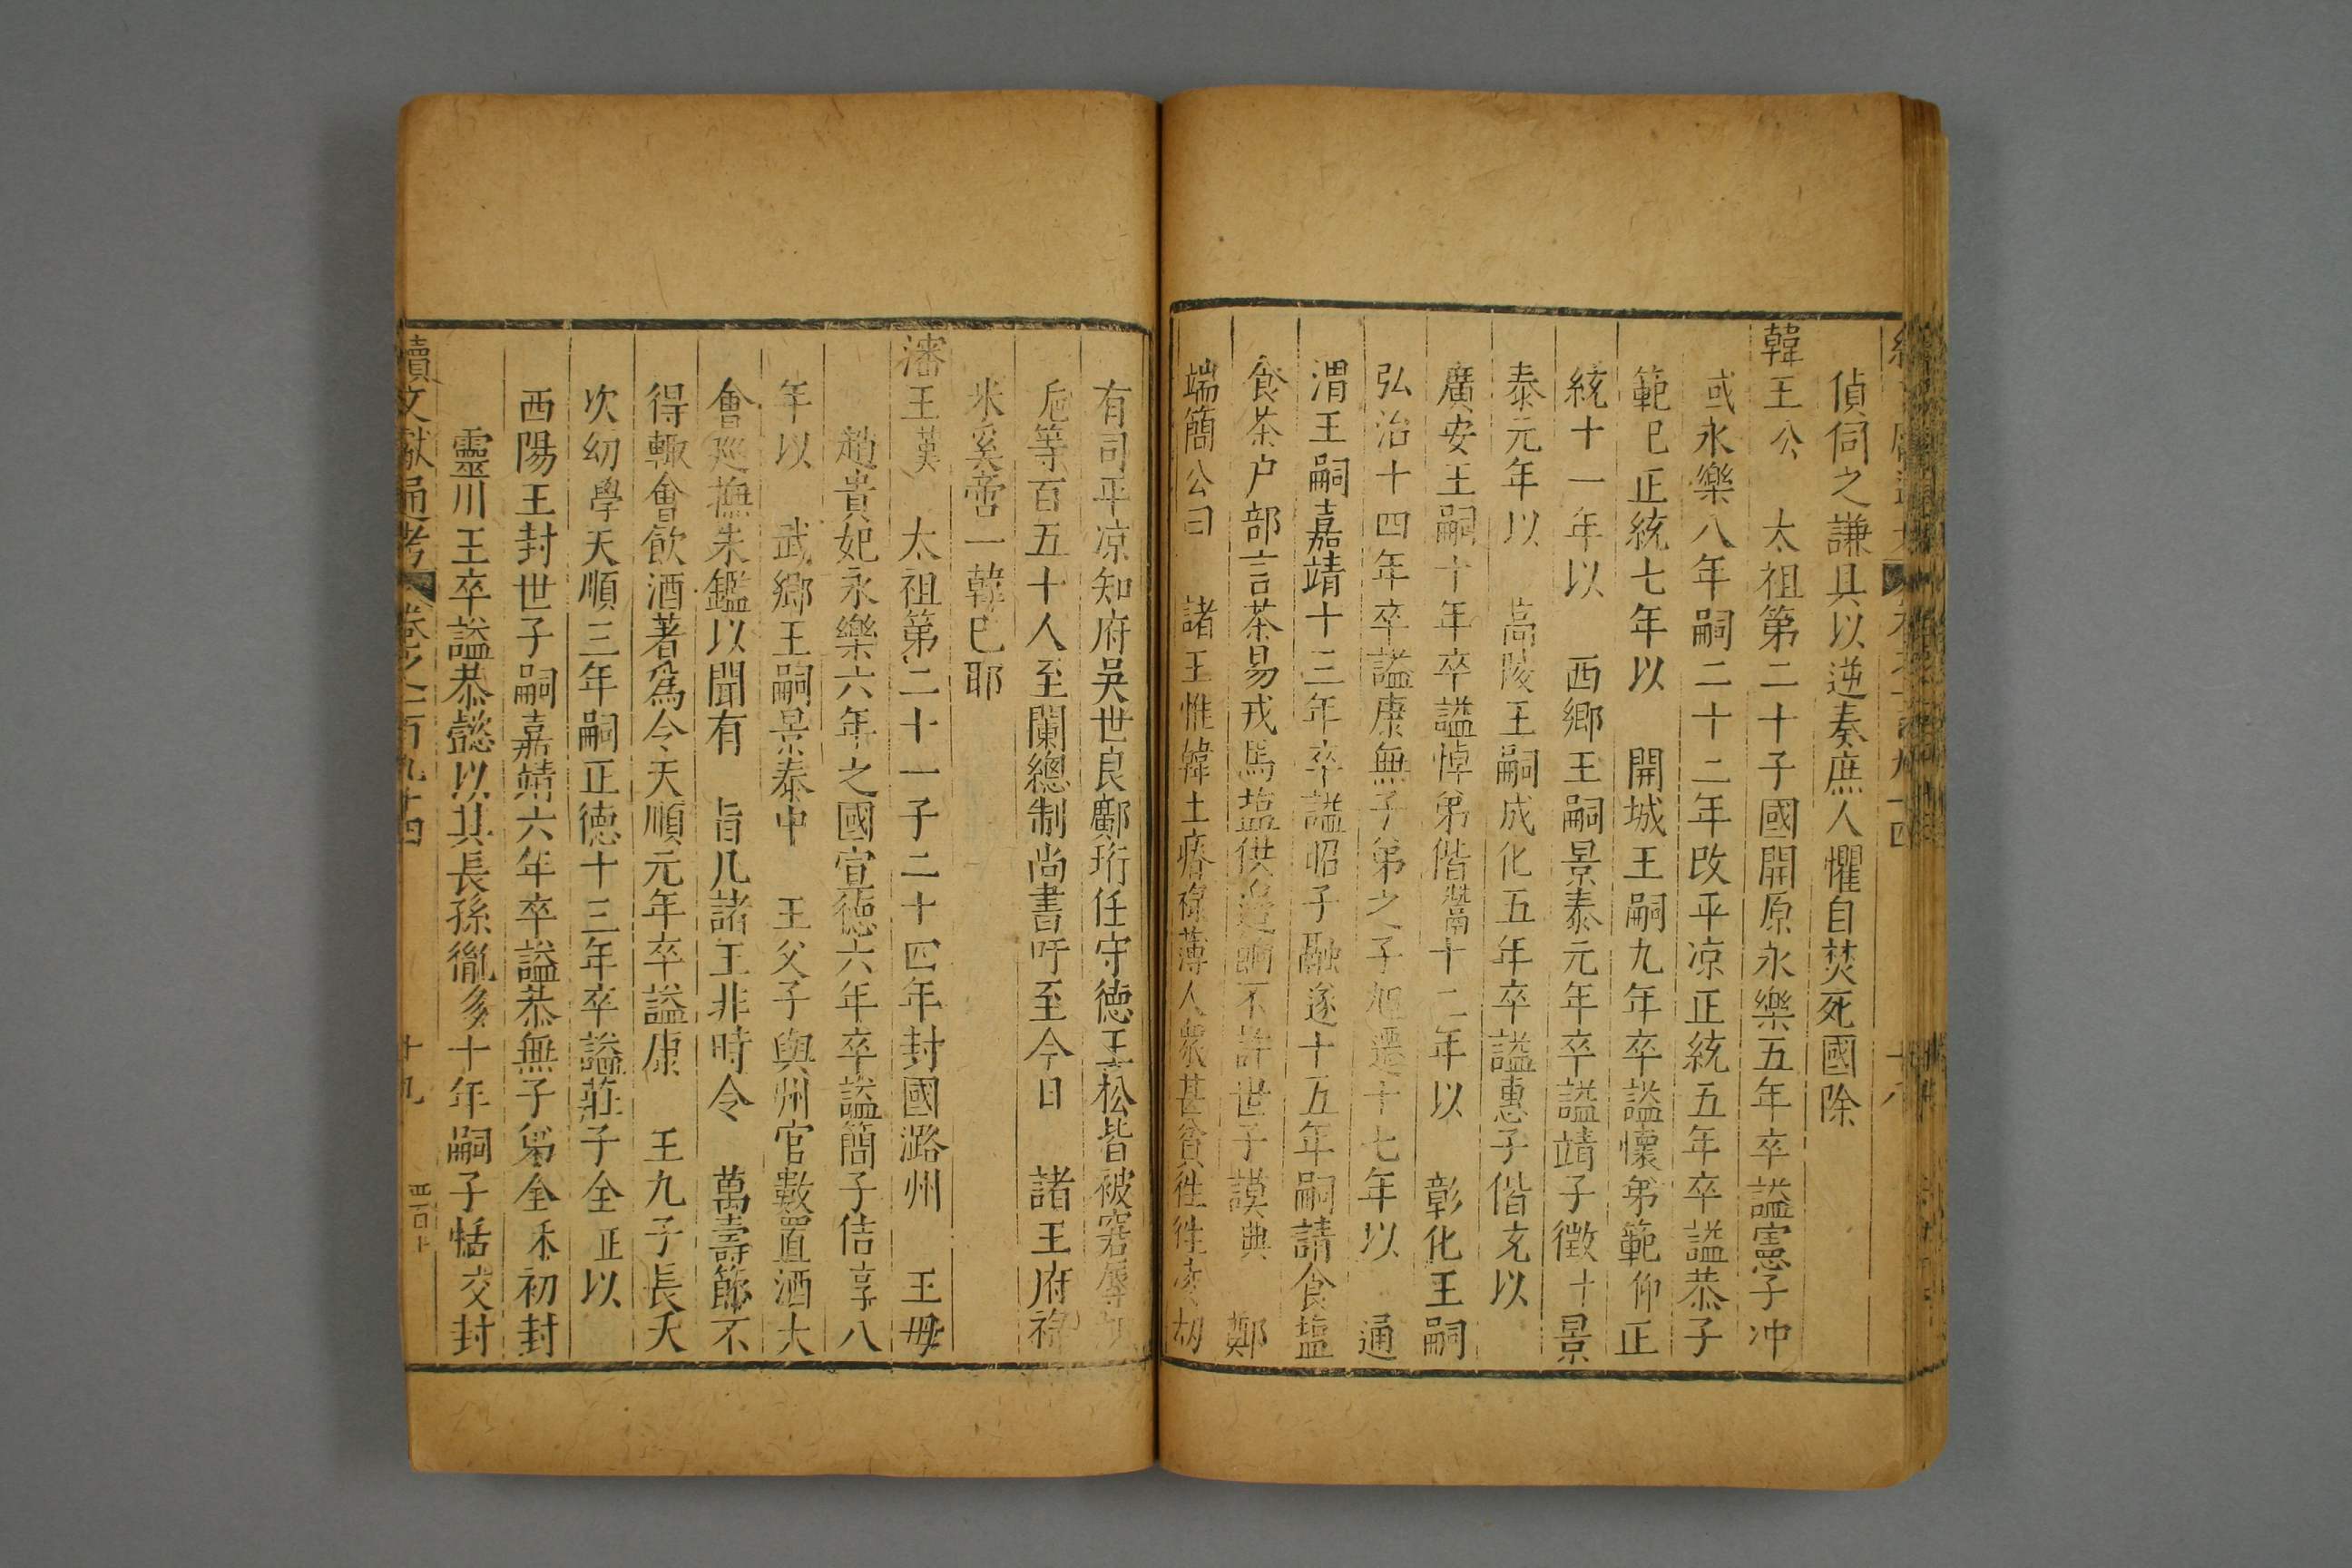 偵伺之謙具以逆奏庶人懼自焚死國除
韓王公 太祖第二十子國開原永樂五年卒謚憲子冲
或永樂八年嗣二十二年改平凉正統五年卒謚恭子
範圯正統七年以 開城王嗣九年卒謚懷弟範仰正
統十一年以 西鄉王嗣景泰元年卒謚靖子徵十景
泰元年以 高陵王嗣成化五年卒謚惠子偕𠅙以
廣安王嗣十年卒謚悼弟偕灊十二年以 彰化王嗣
弘治十四年卒謚康無子弟之子旭遷十七年以 通
渭王嗣嘉靖十三年卒謚昭子融遂十五年嗣請食塩
食茶户部言茶易戎馬塩供邉餉不許世子謨典 鄭
端簡公曰 諸王惟韓土瘠禄薄人衆甚貧徃徃凌刼
有司平凉知府吳世良鄺珩任守德王松皆被窘辱
卮等百五十人至闌總制尚書吁至今日 諸王府禄
米奚啻一韓已耶
瀋王模 太祖第二十一子二十四年封國潞州 王毋
趙貴妃永樂六年之國宣德六年卒謚簡子佶享八
年以 武鄉王嗣景泰中 王父子與州官數置酒大
會廵撫朱鑑以聞有 旨凢諸王非時令 萬壽節不
得輙會飲酒著爲今天順元年卒謚康 王九子長夭
次幼學天順三年嗣正德十三年卒謚莊子全正以
西陽王封世子嗣嘉靖六年卒謚恭無子弟全禾初封
靈川王卒謚恭懿以其長孫徹多十年嗣子恬交封
續文獻通考 卷之二百九十四 十九